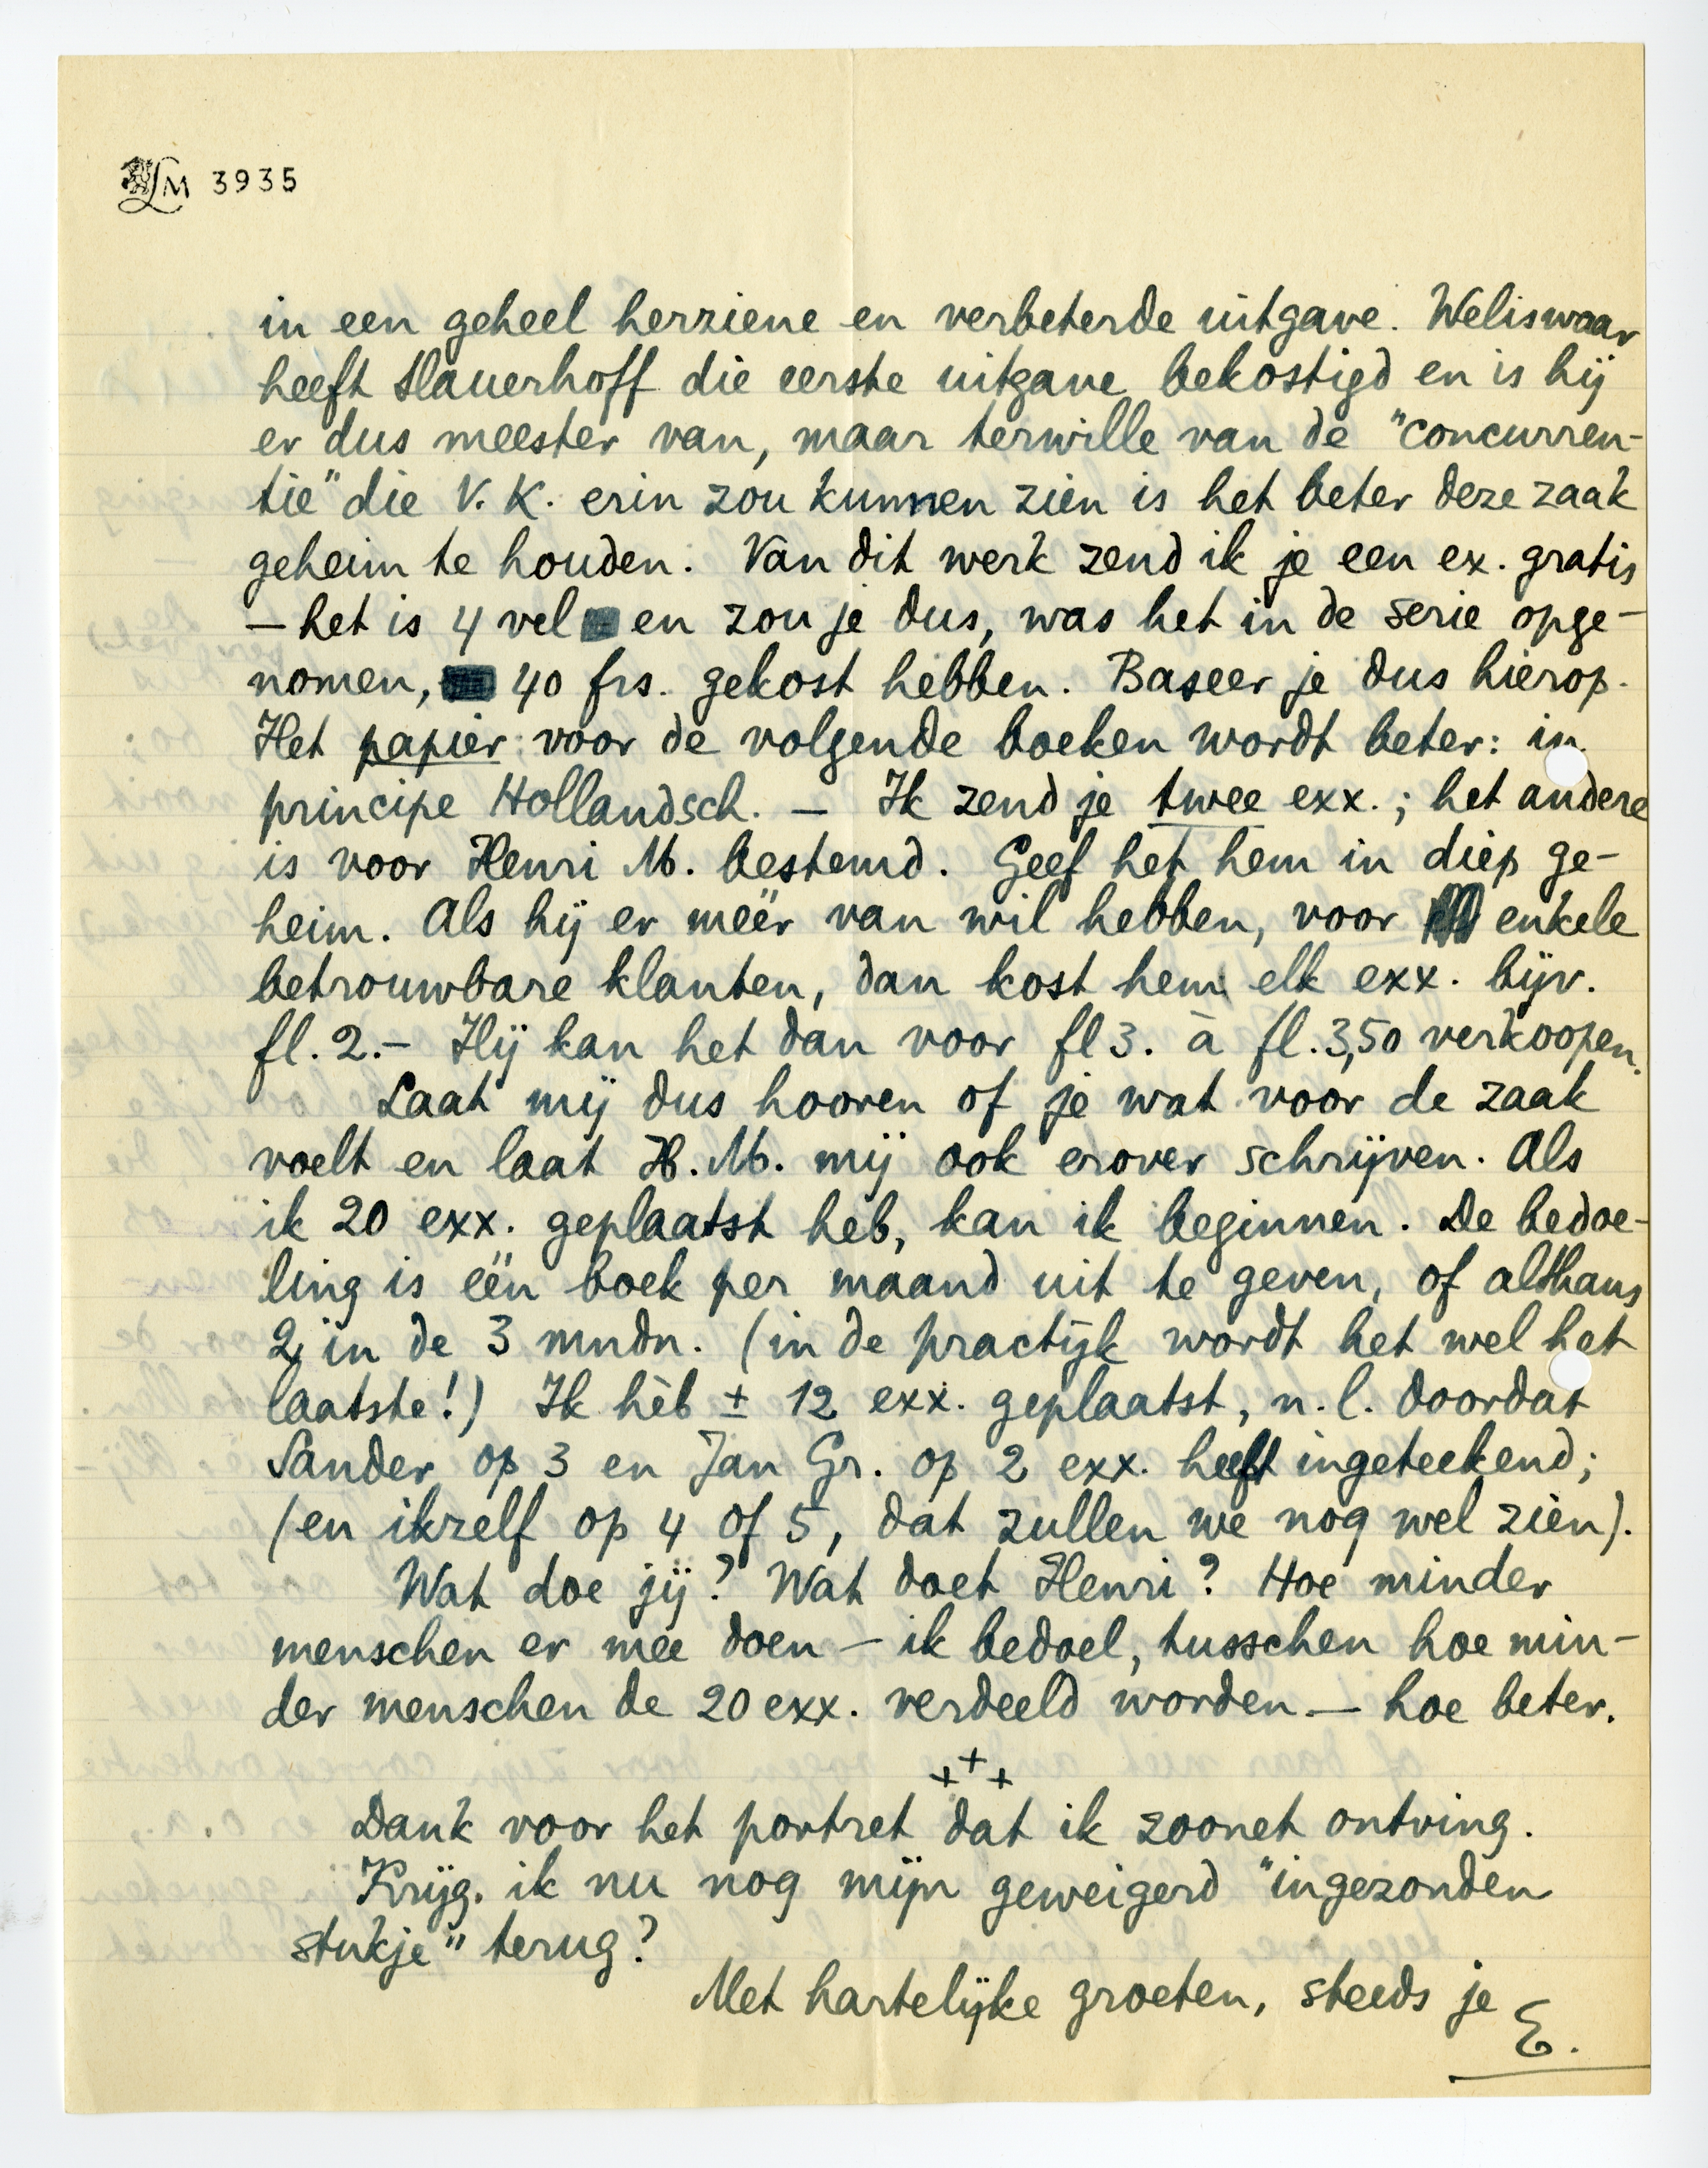 LM 3935
in een geheel herziene en verbeterde uitgave. Weliswaar
heeft Slauerhoff die eerste uitgave bekostigd en is hij
er dus meester van, maar terwille van de "concurren-
tie" die V. K. erin zou kunnen zien is het beter deze zaak
geheim te houden. Van dit werk zend ik je een ex. gratis
— het is 4 vel en zou je dus, was het in de serie opge-
nomen, 40 frs. gekost hebben. Baseer je dus hierop.
Het papier voor de volgende boeken wordt beter: in
principe Hollandsch. — Ik zend je twee exx.; het andere
is voor Henri M. bestemd. Geef het hem in diep ge-
heim. Als hij er méér van wil hebben, voor enkele
betrouwbare klanten, dan kost hem elk exx. bijv.
fl. 2.– Hij kan het dan voor fl 3. à fl. 3,50 verkoopen.
Laat mij dus hooren of je wat voor de zaak
voelt en laat H. M. mij ook erover schrijven. Als
ik 20 exx. geplaatst heb, kan ik beginnen. De bedoe-
ling is één boek per maand uit te geven, of althans
2 in de 3 mndn. (in de practijk wordt het wel het
laatste!) Ik hèb ± 12 exx. geplaatst, n.l. doordat
Sander op 3 en Jan Gr. op 2 exx. heeft ingeteekend;
(en ikzelf op 4 of 5, dat zullen we nog wel zien).
Wat doe jij? Wat doet Henri? Hoe minder
menschen er mee doen — ik bedoel, tusschen hoe min-
der menschen de 20 exx. verdeeld worden — hoe beter.
+++
Dank voor het portret dat ik zoonet ontving.
Krijg ik nu nog mijn geweigerd "ingezonden
stukje" terug?
Met hartelijke groeten, steeds je
E.